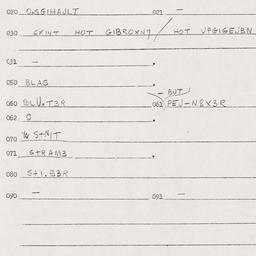 020 O.SGIHAJLT 021 —
030 GKINT HOT GIBROXN7 / HOT UPGIGEJBN
031 — .
050 BLAG .
— BUT
060 BLU.T3R 061 PEJ-N8X3R
062 O .
070 ¼ S+NIT
071 G+RAM3 .
080 S+1.53R
090 — 091 —